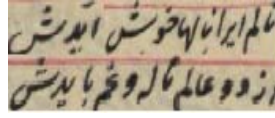 نالم ایرا نالها خوش آیدش
وز دو عالم ناله و غم بایدش